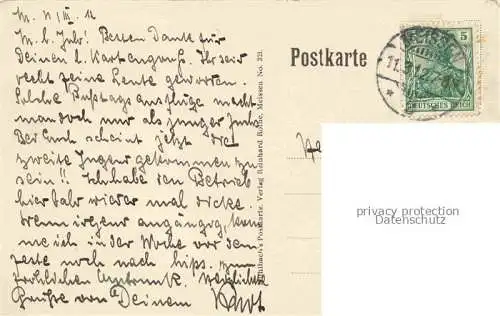 M. 11/III. 12
M. l. Jub! Besten Dank für
Deinen l. Kartengruß. Ihr seid
recht feine Leute geworden.
Solche Bußtagsausflüge macht
man doch nur als junger
Bei Euch scheint jetzt die
zweite Jugend gekommen zu
sein!! Ich habe den Betrieb
hier wieder mal dicke.
Wenn irgend angängig, komme
ich in der Woche vor dem
Feste noch nach
fröhlichen Herzlichste
Grüße von Deinem
Postkarte
MEISSEN
11.
5
DEUTSCHES REICH
Postkarte. Verlag Reinhard Rothe, Meissen No. 323.
privacy protection
Datenschutz